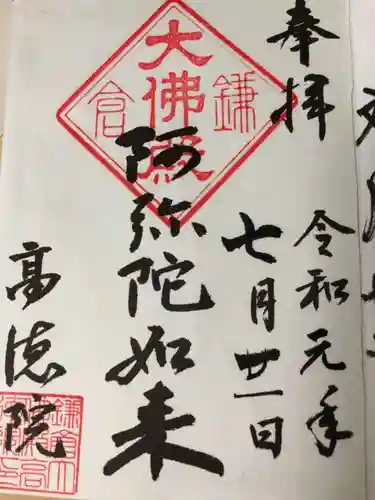 奉拝
令和元年
七月廿一日
大佛殿
鎌倉
阿弥陀如来
高徳院